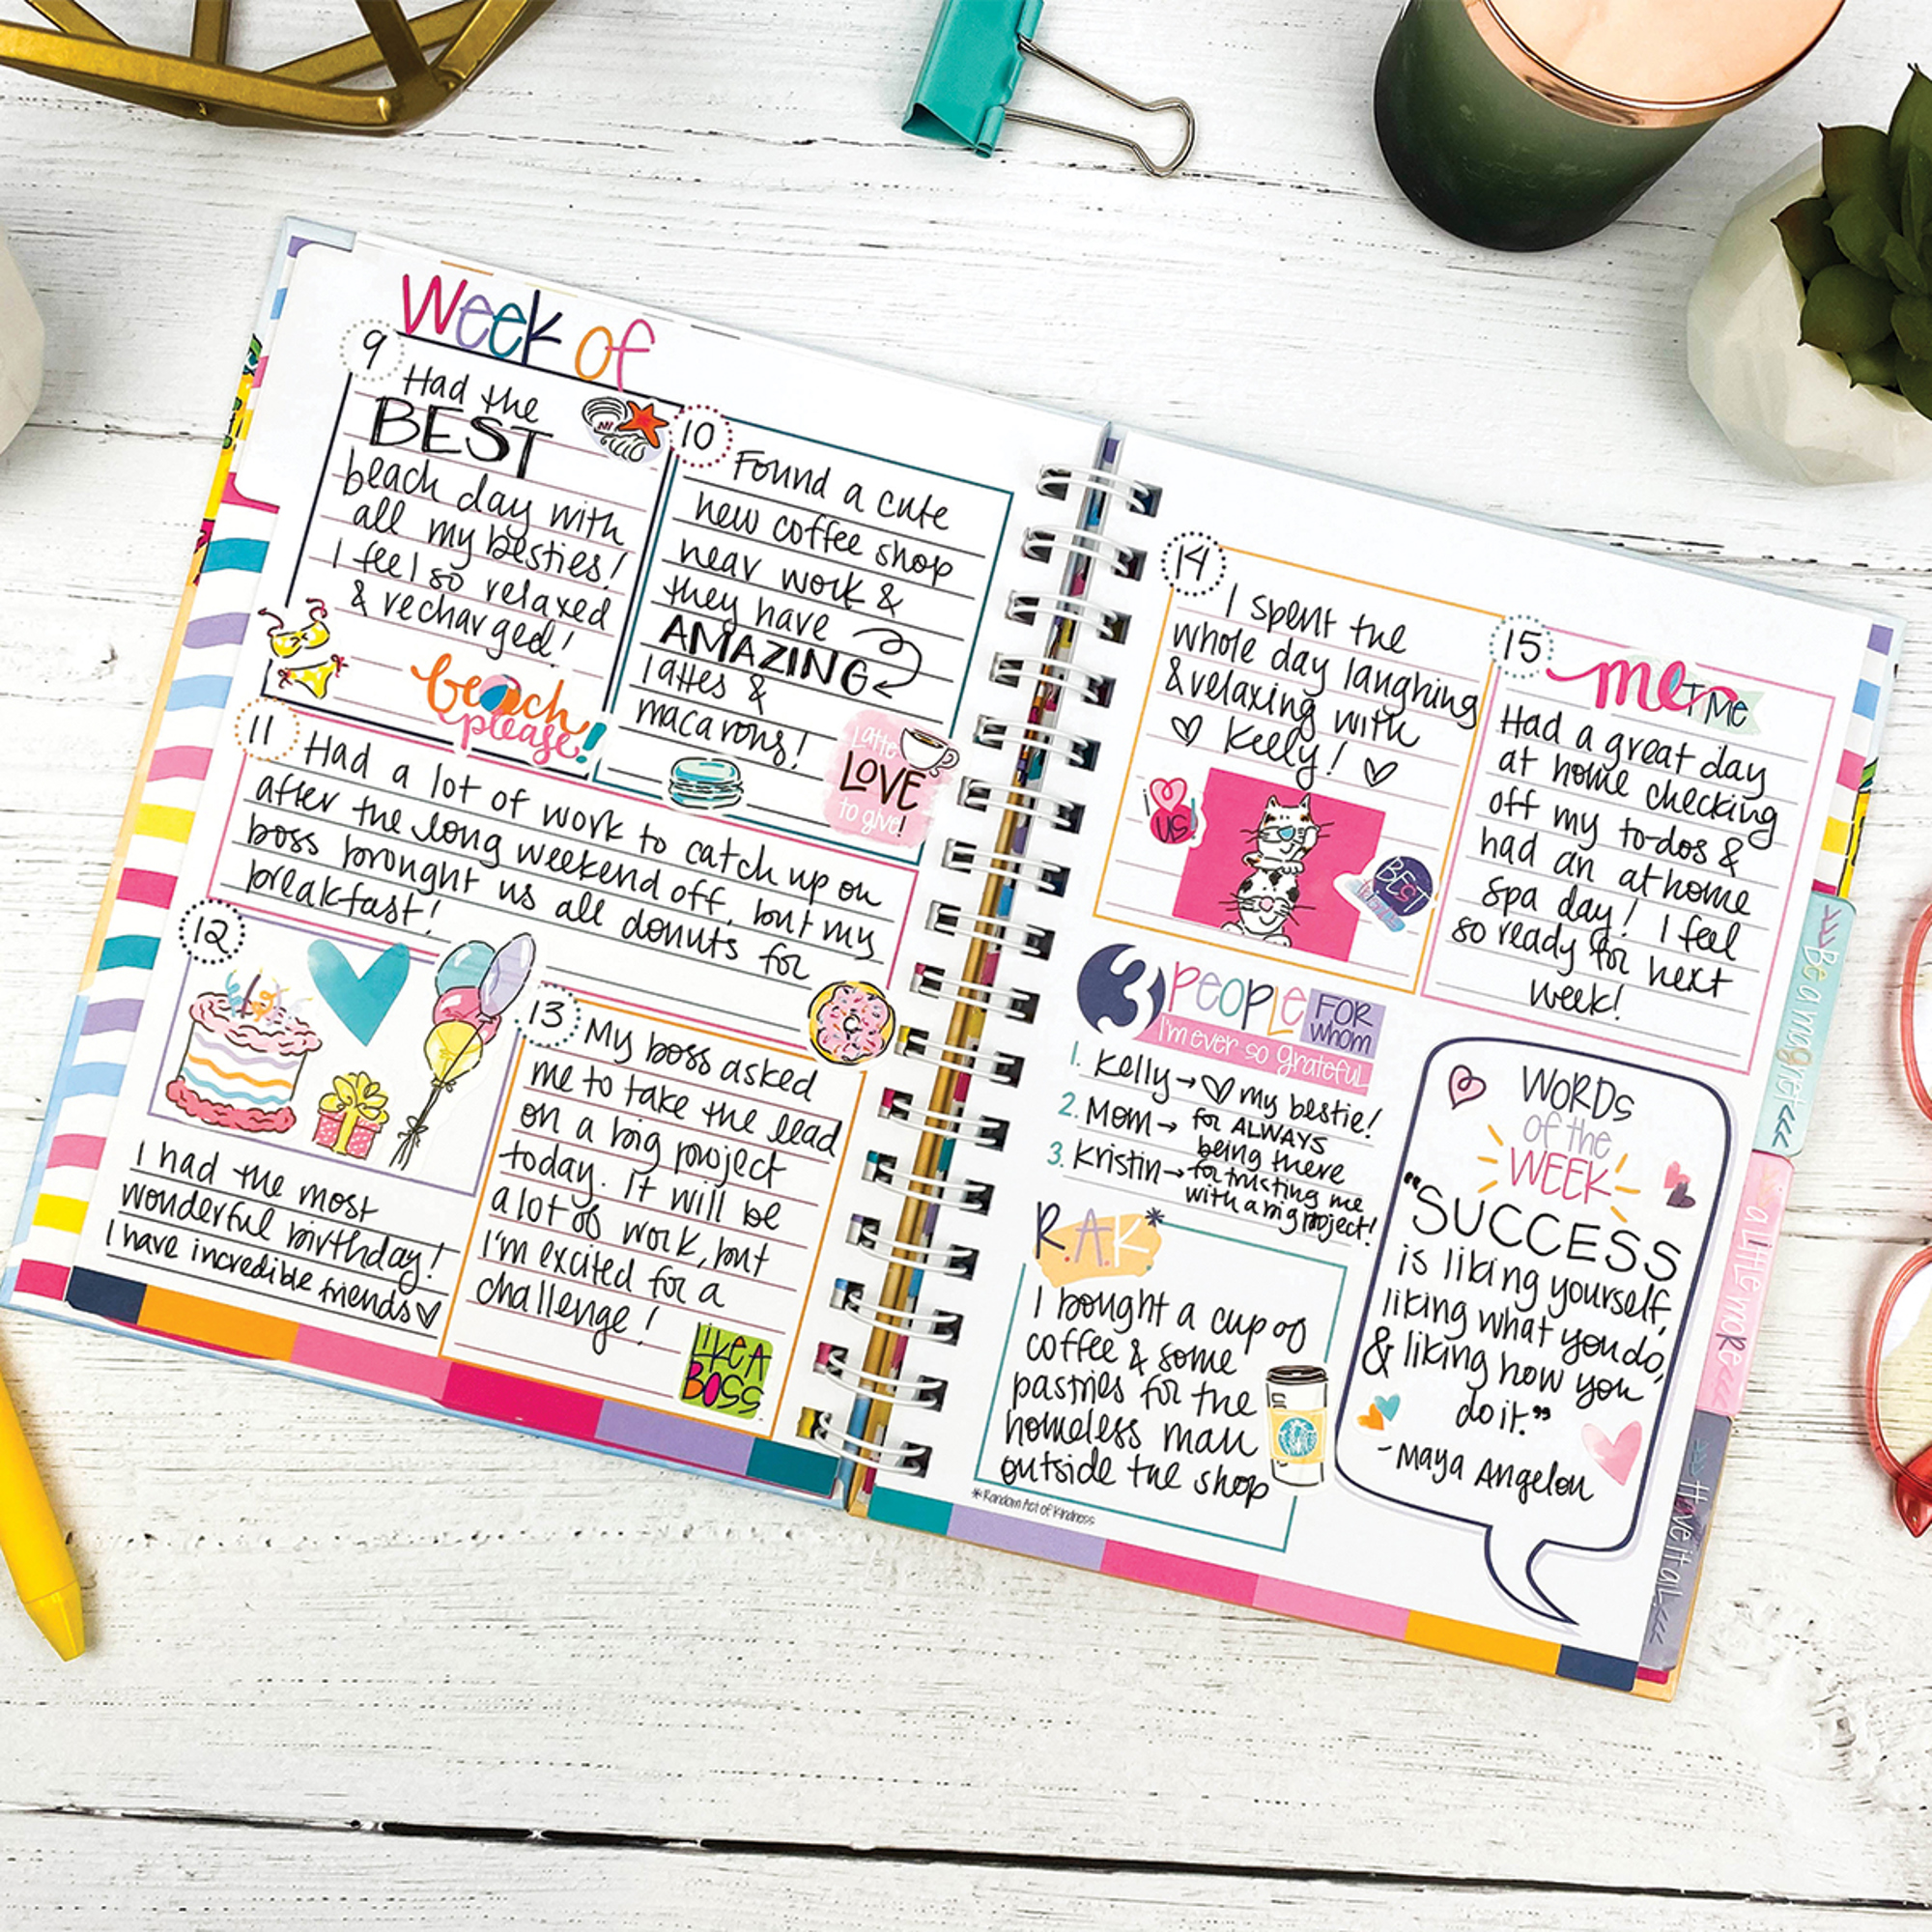 Week of
9
Had the
BEST
beach day with
all my besties!
I feel so relaxed
& recharged!
beach
please!
10
Found a cute
new coffee shop
near work &
they have
AMAZING
lattes &
macarons!
Latte
LOVE
to give!
11
Had a lot of work to catch up on
after the long weekend off, but my
boss brought us all donuts for
breakfast!
12
I had the most
wonderful birthday!
I have incredible friends
13
My boss asked
me to take the lead
on a big project
today. It will be
a lot of work, but
I'm excited for a
challenge!
LIKE A
BOSS
14
I spent the
whole day laughing
& relaxing with
Kelly!
i
US!
BEST
15
me TIME
Had a great day
at home checking
off my to-dos &
had an at home
spa day! I feel
so ready for next
week!
3 PEOPLE FOR
WHOM
I'm ever so grateful
1. Kelly → my bestie!
2. Mom → for ALWAYS
being there
3. Kristin → for trusting me
with a big project!
R.A.K*
I bought a cup of
coffee & some
pastries for the
homeless man
outside the shop
*Random Act of Kindness
WORDS
of the
WEEK
"SUCCESS
is liking yourself,
liking what you do,
& liking how you
do it."
-Maya Angelou
Be a magnet <<<
a little more <<<